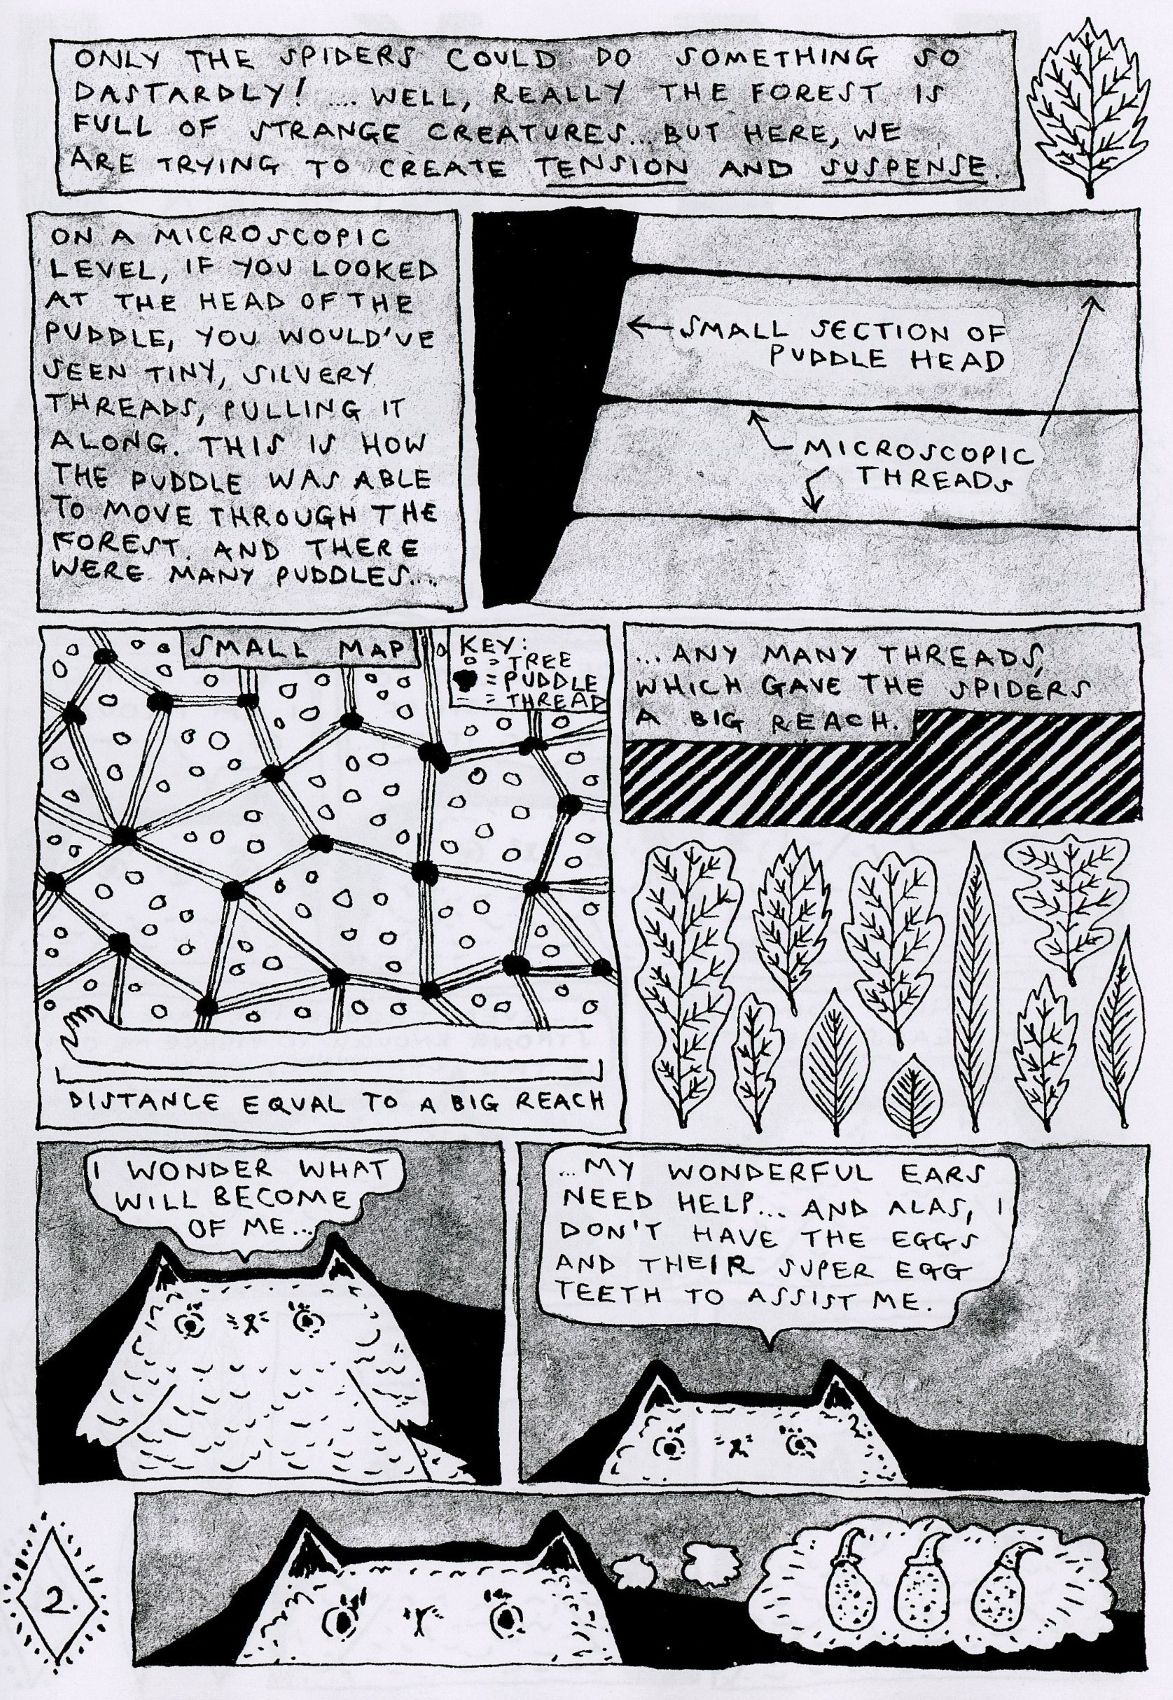 ONLY THE SPIDERS COULD DO SOMETHING SO
DASTARDLY! .... WELL, REALLY THE FOREST IS
FULL OF STRANGE CREATURES... BUT HERE, WE
ARE TRYING TO CREATE TENSION AND SUSPENSE.
ON A MICROSCOPIC
LEVEL, IF YOU LOOKED
AT THE HEAD OF THE
PUDDLE, YOU WOULD'VE
SEEN TINY, SILVERY
THREADS, PULLING IT
ALONG. THIS IS HOW
THE PUDDLE WAS ABLE
TO MOVE THROUGH THE
FOREST. AND THERE
WERE MANY PUDDLES...
SMALL SECTION OF
PUDDLE HEAD
MICROSCOPIC
THREADS
SMALL MAP
KEY:
= TREE
= PUDDLE
= THREAD
DISTANCE EQUAL TO A BIG REACH
...ANY MANY THREADS,
WHICH GAVE THE SPIDERS
A BIG REACH.
I WONDER WHAT
WILL BECOME
OF ME...
...MY WONDERFUL EARS
NEED HELP... AND ALAS, I
DON'T HAVE THE EGGS
AND THEIR SUPER EGG
TEETH TO ASSIST ME.
2.